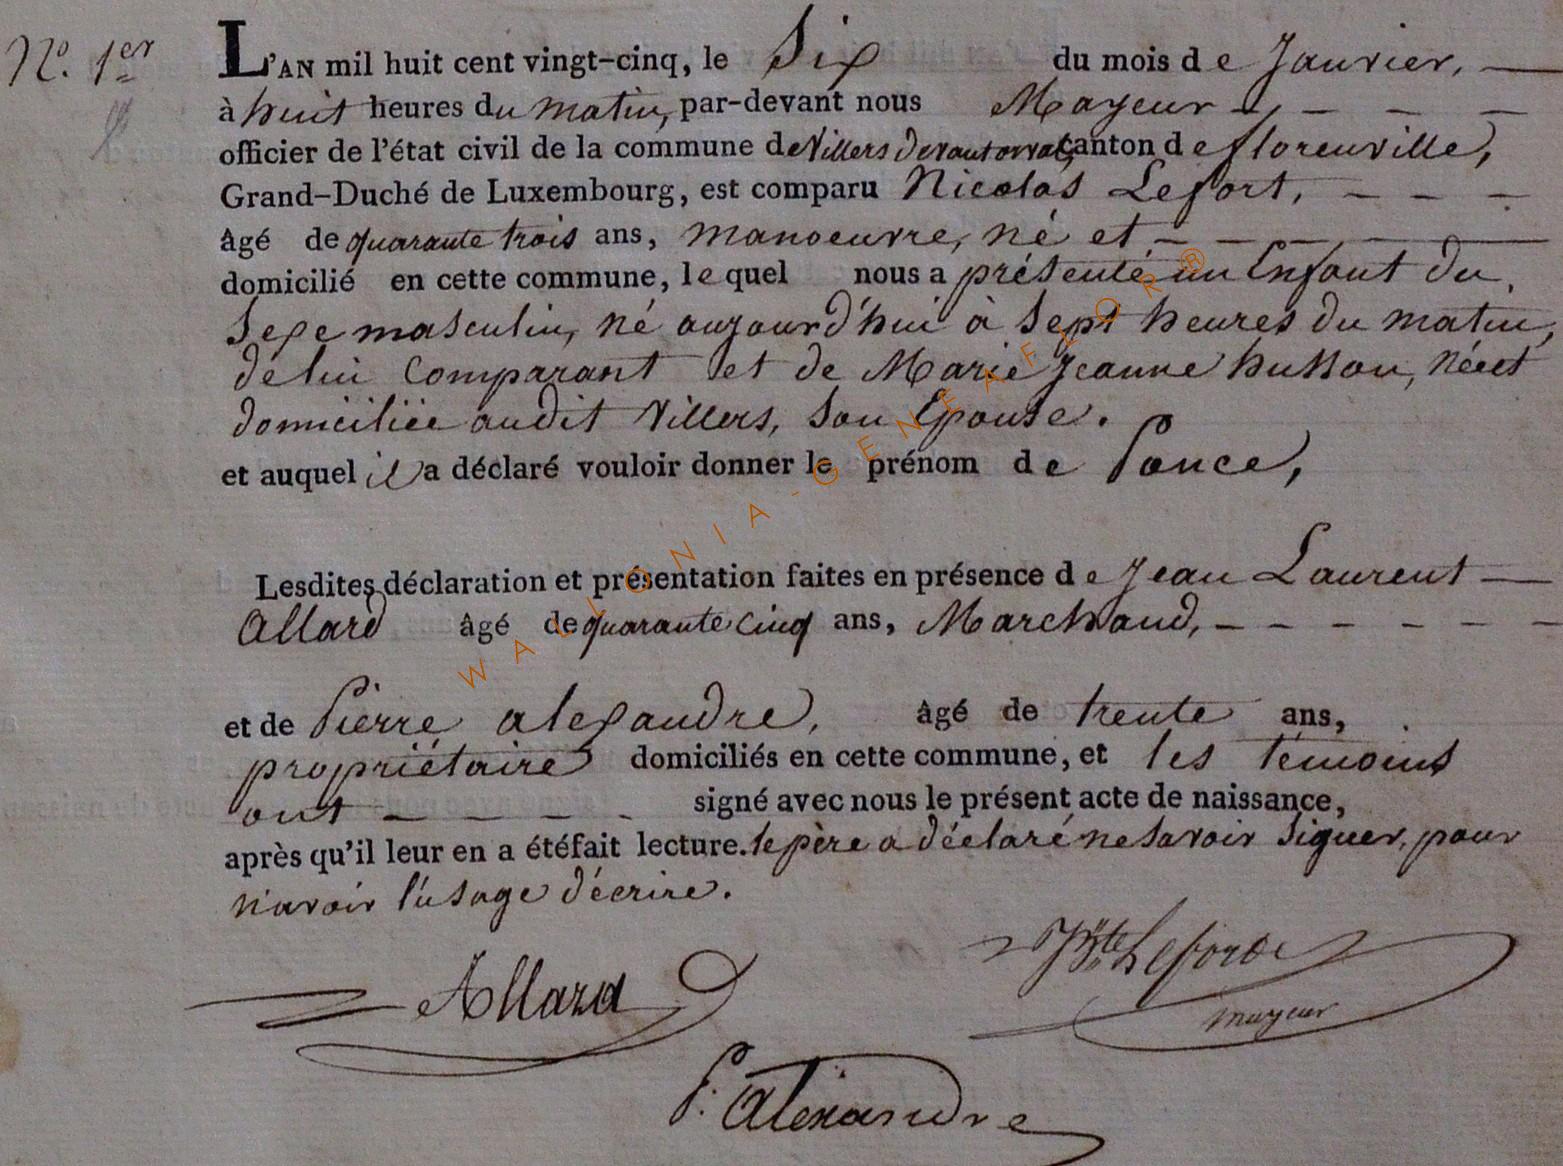 N.o 1.er
L'AN mil huit cent vingt-cinq, le Six du mois de Janvier,
à huit heures du matin, par-devant nous Mayeur
officier de l'état civil de la commune de Villers devant orval, canton de florenville,
Grand-Duché de Luxembourg, est comparu Nicolas Lefort,
âgé de quarante trois ans, manoeuvre, né et
domicilié en cette commune, lequel nous a présenté un Enfant du
Sexe masculin, né aujourd'hui à Sept heures du matin,
de lui Comparant et de Marie Jeanne husson, née et
domiciliée audit Villers, Son Epouse.
et auquel il a déclaré vouloir donner le prénom de Ponce,
Lesdites déclaration et présentation faites en présence de Jean Laurent
Allard âgé de quarante cinq ans, Marchand,
et de Pierre alexandre, âgé de trente ans,
propriétaire domiciliés en cette commune, et les témoins
ont signé avec nous le présent acte de naissance,
après qu'il leur en a été fait lecture. le père a déclaré ne Savoir Signer, pour
n'avoir l'usage d'écrire.
Allard
JBte Lefort
mayeur
P. Alexandre
WALLONIA-GENEAFLOR®